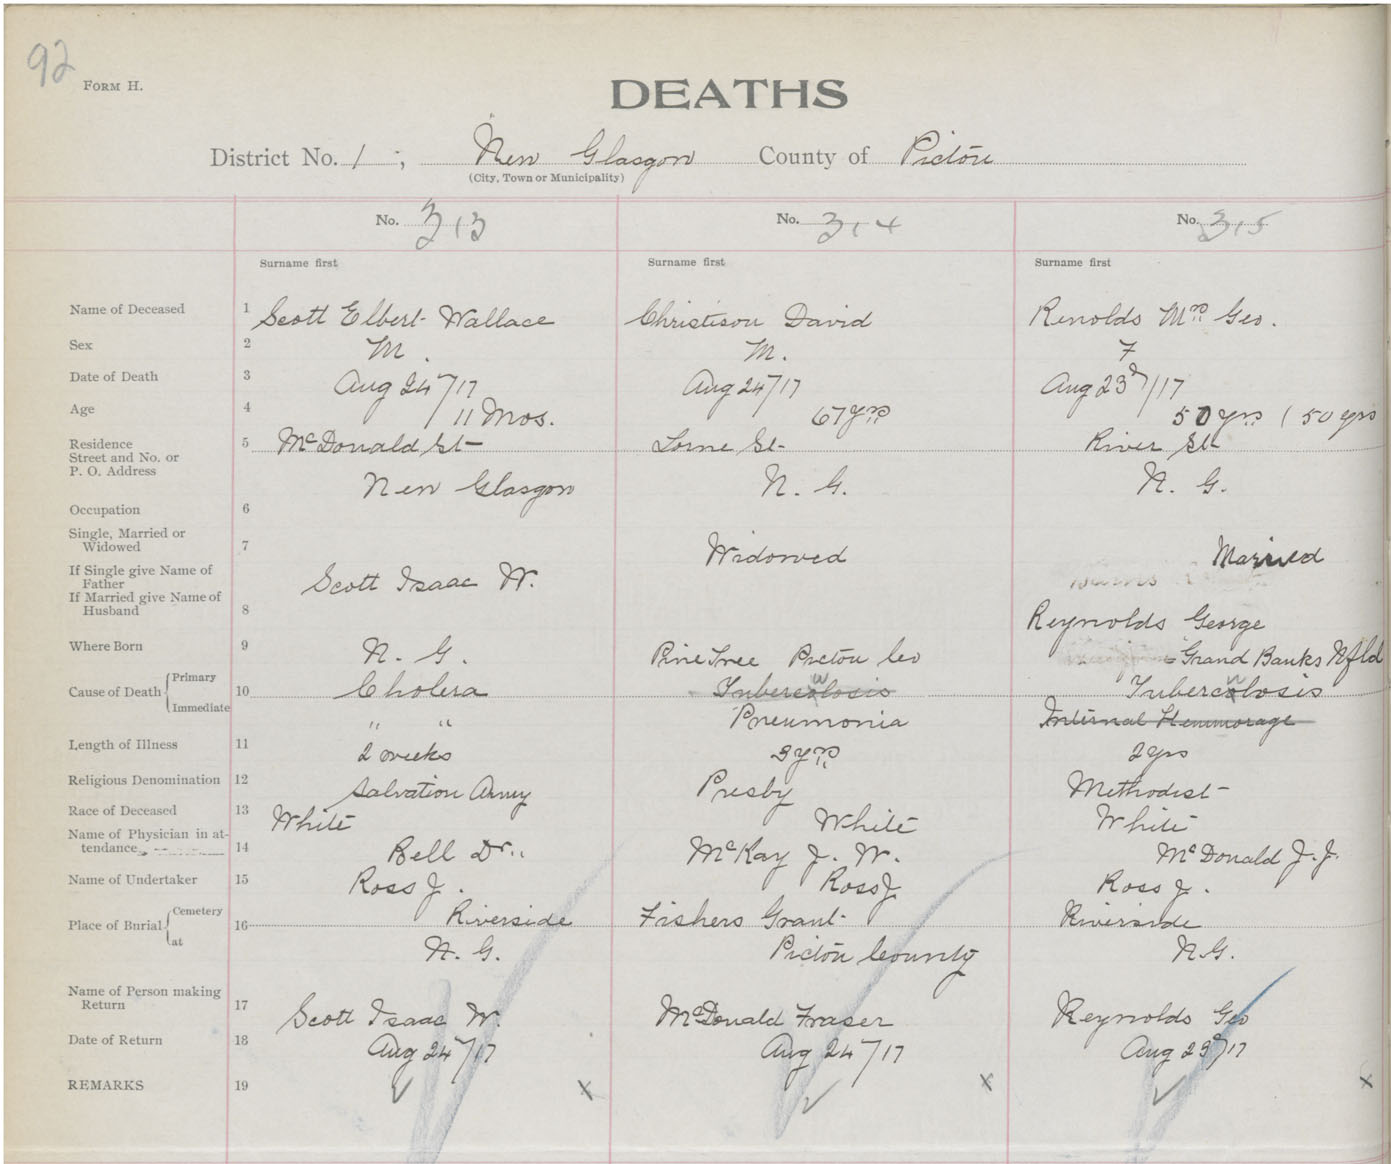 92
FORM H.
DEATHS
District No. 1 ; New Glasgow County of Pictou
(City, Town or Municipality)
No. 313 No. 314 No. 315
Surname first Surname first Surname first
Name of Deceased 1 Scott Elbert Wallace Christison David Renolds Mrs Geo.
Sex 2 M. M. F
Date of Death 3 Aug 24/17 Aug 24/17 Aug 23d/17
Age 4 11 Mos. 67 yrs 50 yrs (50 yrs
Residence 5 McDonald St Lorne St River St
Street and No. or
P. O. Address New Glasgow N. G. N. G.
Occupation 6
Single, Married or
Widowed 7 Widowed Married
If Single give Name of
Father Scott Isaac W.
If Married give Name of
Husband 8 Reynolds George
Where Born 9 N. G. Pine Tree Pictou Co Grand Banks Nfld
Cause of Death Primary 10 Cholera Tuberculosis Tuberculosis
Immediate " " Pneumonia Internal Hemmorage
Length of Illness 11 2 weeks 3 yrs 2 yrs
Religious Denomination 12 Salvation Army Presby Methodist
Race of Deceased 13 White White White
Name of Physician in at-
tendance 14 Bell Dr. McKay J. W. McDonald J. J.
Name of Undertaker 15 Ross J. Ross J Ross J.
Place of Burial Cemetery 16 Riverside Fishers Grant Riverside
at N. G. Pictou County N. G.
Name of Person making
Return 17 Scott Isaac W. McDonald Fraser Reynolds Geo
Date of Return 18 Aug 24/17 Aug 24/17 Aug 23d/17
REMARKS 19 x x x